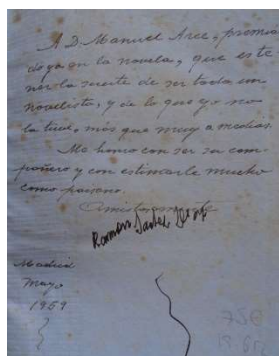 A D. Manuel Arce, premia
do ya en la novela, que es te
ner la suerte de ser todo un
novelista, y de lo que yo no
la tuve, más que muy a medias.
Me honro con ser su com
pañero y con estimarle mucho
como paisano.
Amistosamente
Ramón
Madrid
Mayo
1959
75€